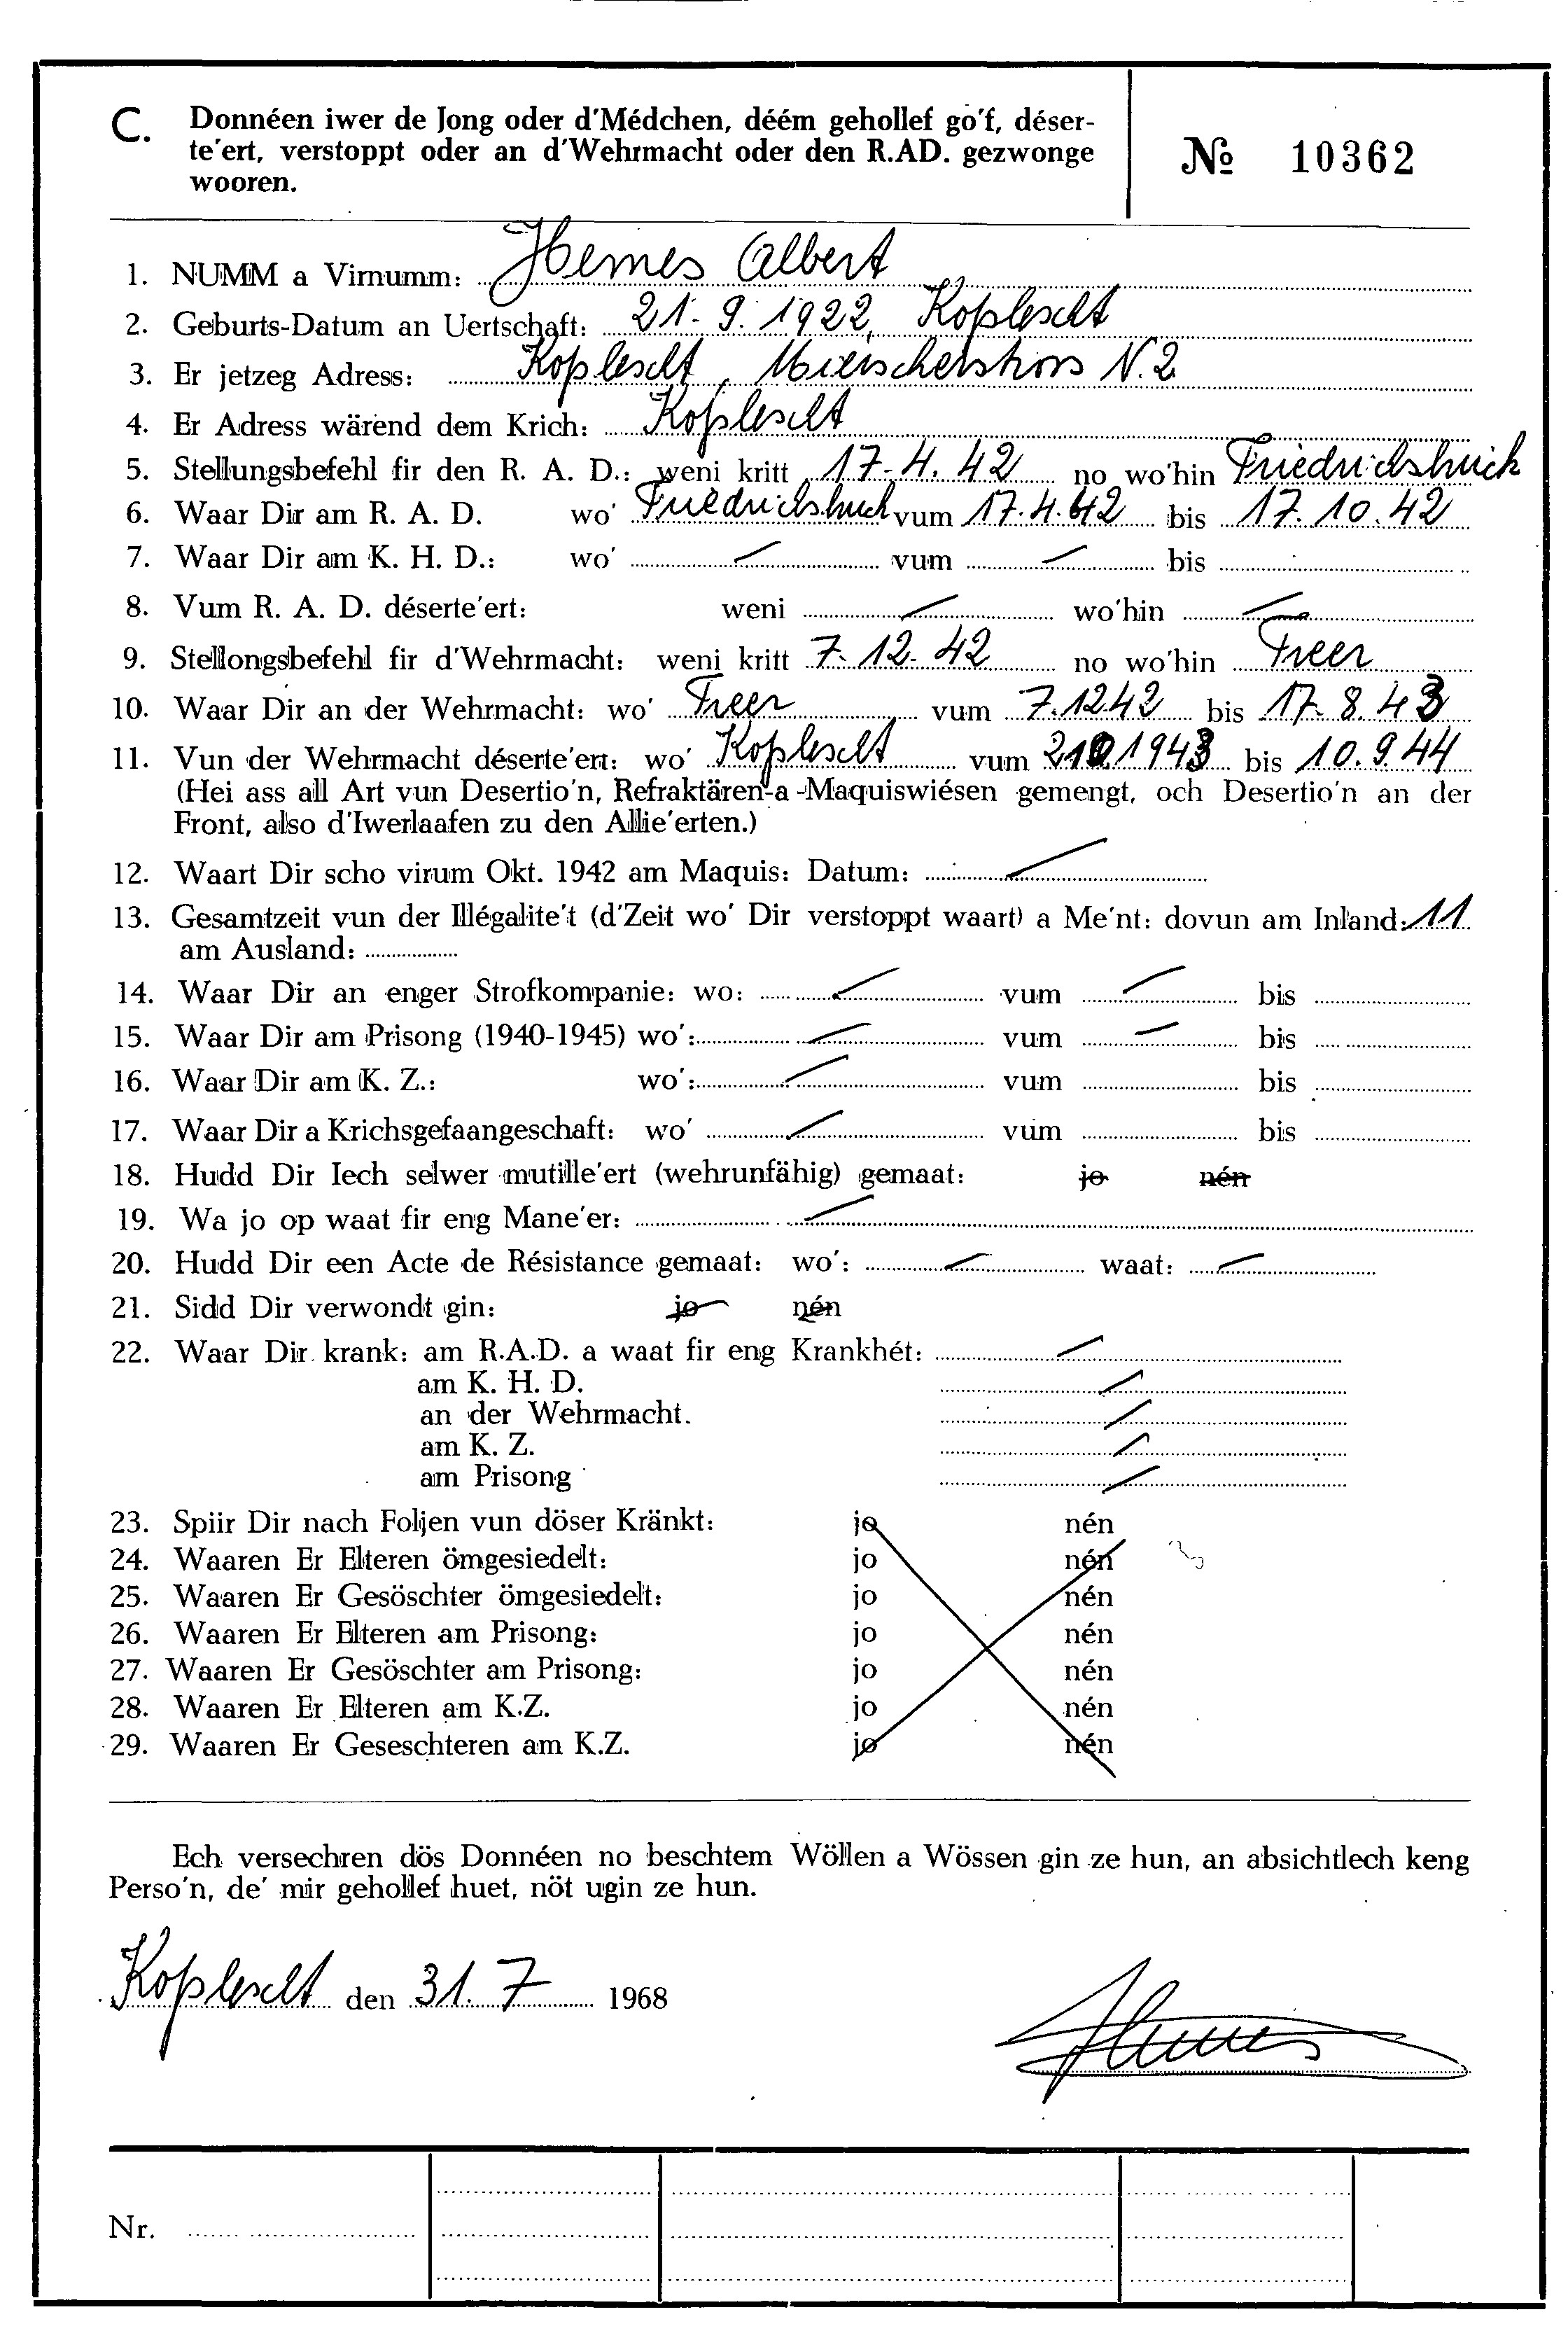 C. Donnéen iwer de Jong oder d'Médchen, déém gehollef go'f, déser-
te'ert, verstoppt oder an d'Wehrmacht oder den R.AD. gezwonge
wooren.
№ 10362
1. NUMM a Virnumm: Hemes Albert
2. Geburts-Datum an Uertschaft: 21.9.1922, Koplescht
3. Er jetzeg Adress: Koplescht, N.2
4. Er Adress wärend dem Krich: Koplescht
5. Stellungsbefehl fir den R. A. D.: weni kritt 17.4.42 no wo'hin Friedrichsbrück
6. Waar Dir am R. A. D. wo' Friedrichsbrück vum 17.4.42 bis 17.10.42
7. Waar Dir am K. H. D.: wo' / vum / bis
8. Vum R. A. D. déserte'ert: weni / wo'hin /
9. Stellongsbefehl fir d'Wehrmacht: weni kritt 7.12.42 no wo'hin Treer
10. Waar Dir an der Wehrmacht: wo' Treer vum 7.12.42 bis 17.8.43
11. Vun der Wehrmacht déserte'ert: wo' Koplescht vum 1943 bis 10.9.44
(Hei ass all Art vun Desertio'n, Refraktären-a-Maquiswiésen gemengt, och Desertio'n an der
Front, also d'Iwerlaafen zu den Allie'erten.)
12. Waart Dir scho virum Okt. 1942 am Maquis: Datum: /
13. Gesamtzeit vun der Illégalite't (d'Zeit wo' Dir verstoppt waart) a Me'nt: dovun am Inland: 11
am Ausland:
14. Waar Dir an enger Strofkompanie: wo: / vum / bis
15. Waar Dir am Prisong (1940-1945) wo': / vum / bis
16. Waar Dir am K. Z.: wo': / vum bis
17. Waar Dir a Krichsgefaangeschaft: wo' / vum bis
18. Hudd Dir Iech selwer mutille'ert (wehrunfähig) gemaat: jo nén
19. Wa jo op waat fir eng Mane'er: /
20. Hudd Dir een Acte de Résistance gemaat: wo': / waat: /
21. Sidd Dir verwondt gin: jo nén
22. Waar Dir krank: am R.A.D. a waat fir eng Krankhét: /
am K. H. D. /
an der Wehrmacht. /
am K. Z. /
am Prisong /
23. Spiir Dir nach Foljen vun döser Kränkt: jo nén
24. Waaren Er Elteren ömgesiedelt: jo nén
25. Waaren Er Gesöschter ömgesiedelt: jo nén
26. Waaren Er Elteren am Prisong: jo nén
27. Waaren Er Gesöschter am Prisong: jo nén
28. Waaren Er Elteren am K.Z. jo nén
29. Waaren Er Geseschteren am K.Z. jo nén
Ech versechren dös Donnéen no beschtem Wöllen a Wössen gin ze hun, an absichtlech keng
Perso'n, de' mir gehollef huet, nöt ugin ze hun.
Koplescht den 31.7 1968
Nr.